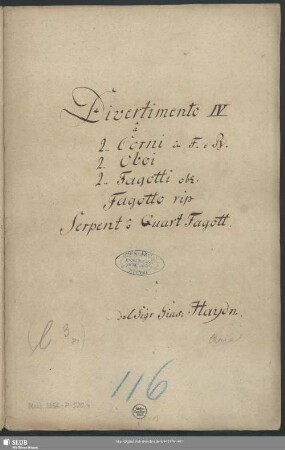 Divertimento IV
à
2 Corni in F. e B.
2 Oboi
2 Fagotti obl.
Fagotto rip
Serpent ò Quart Fagott.
del Sigr Gius. Haydn.
116
SLUB